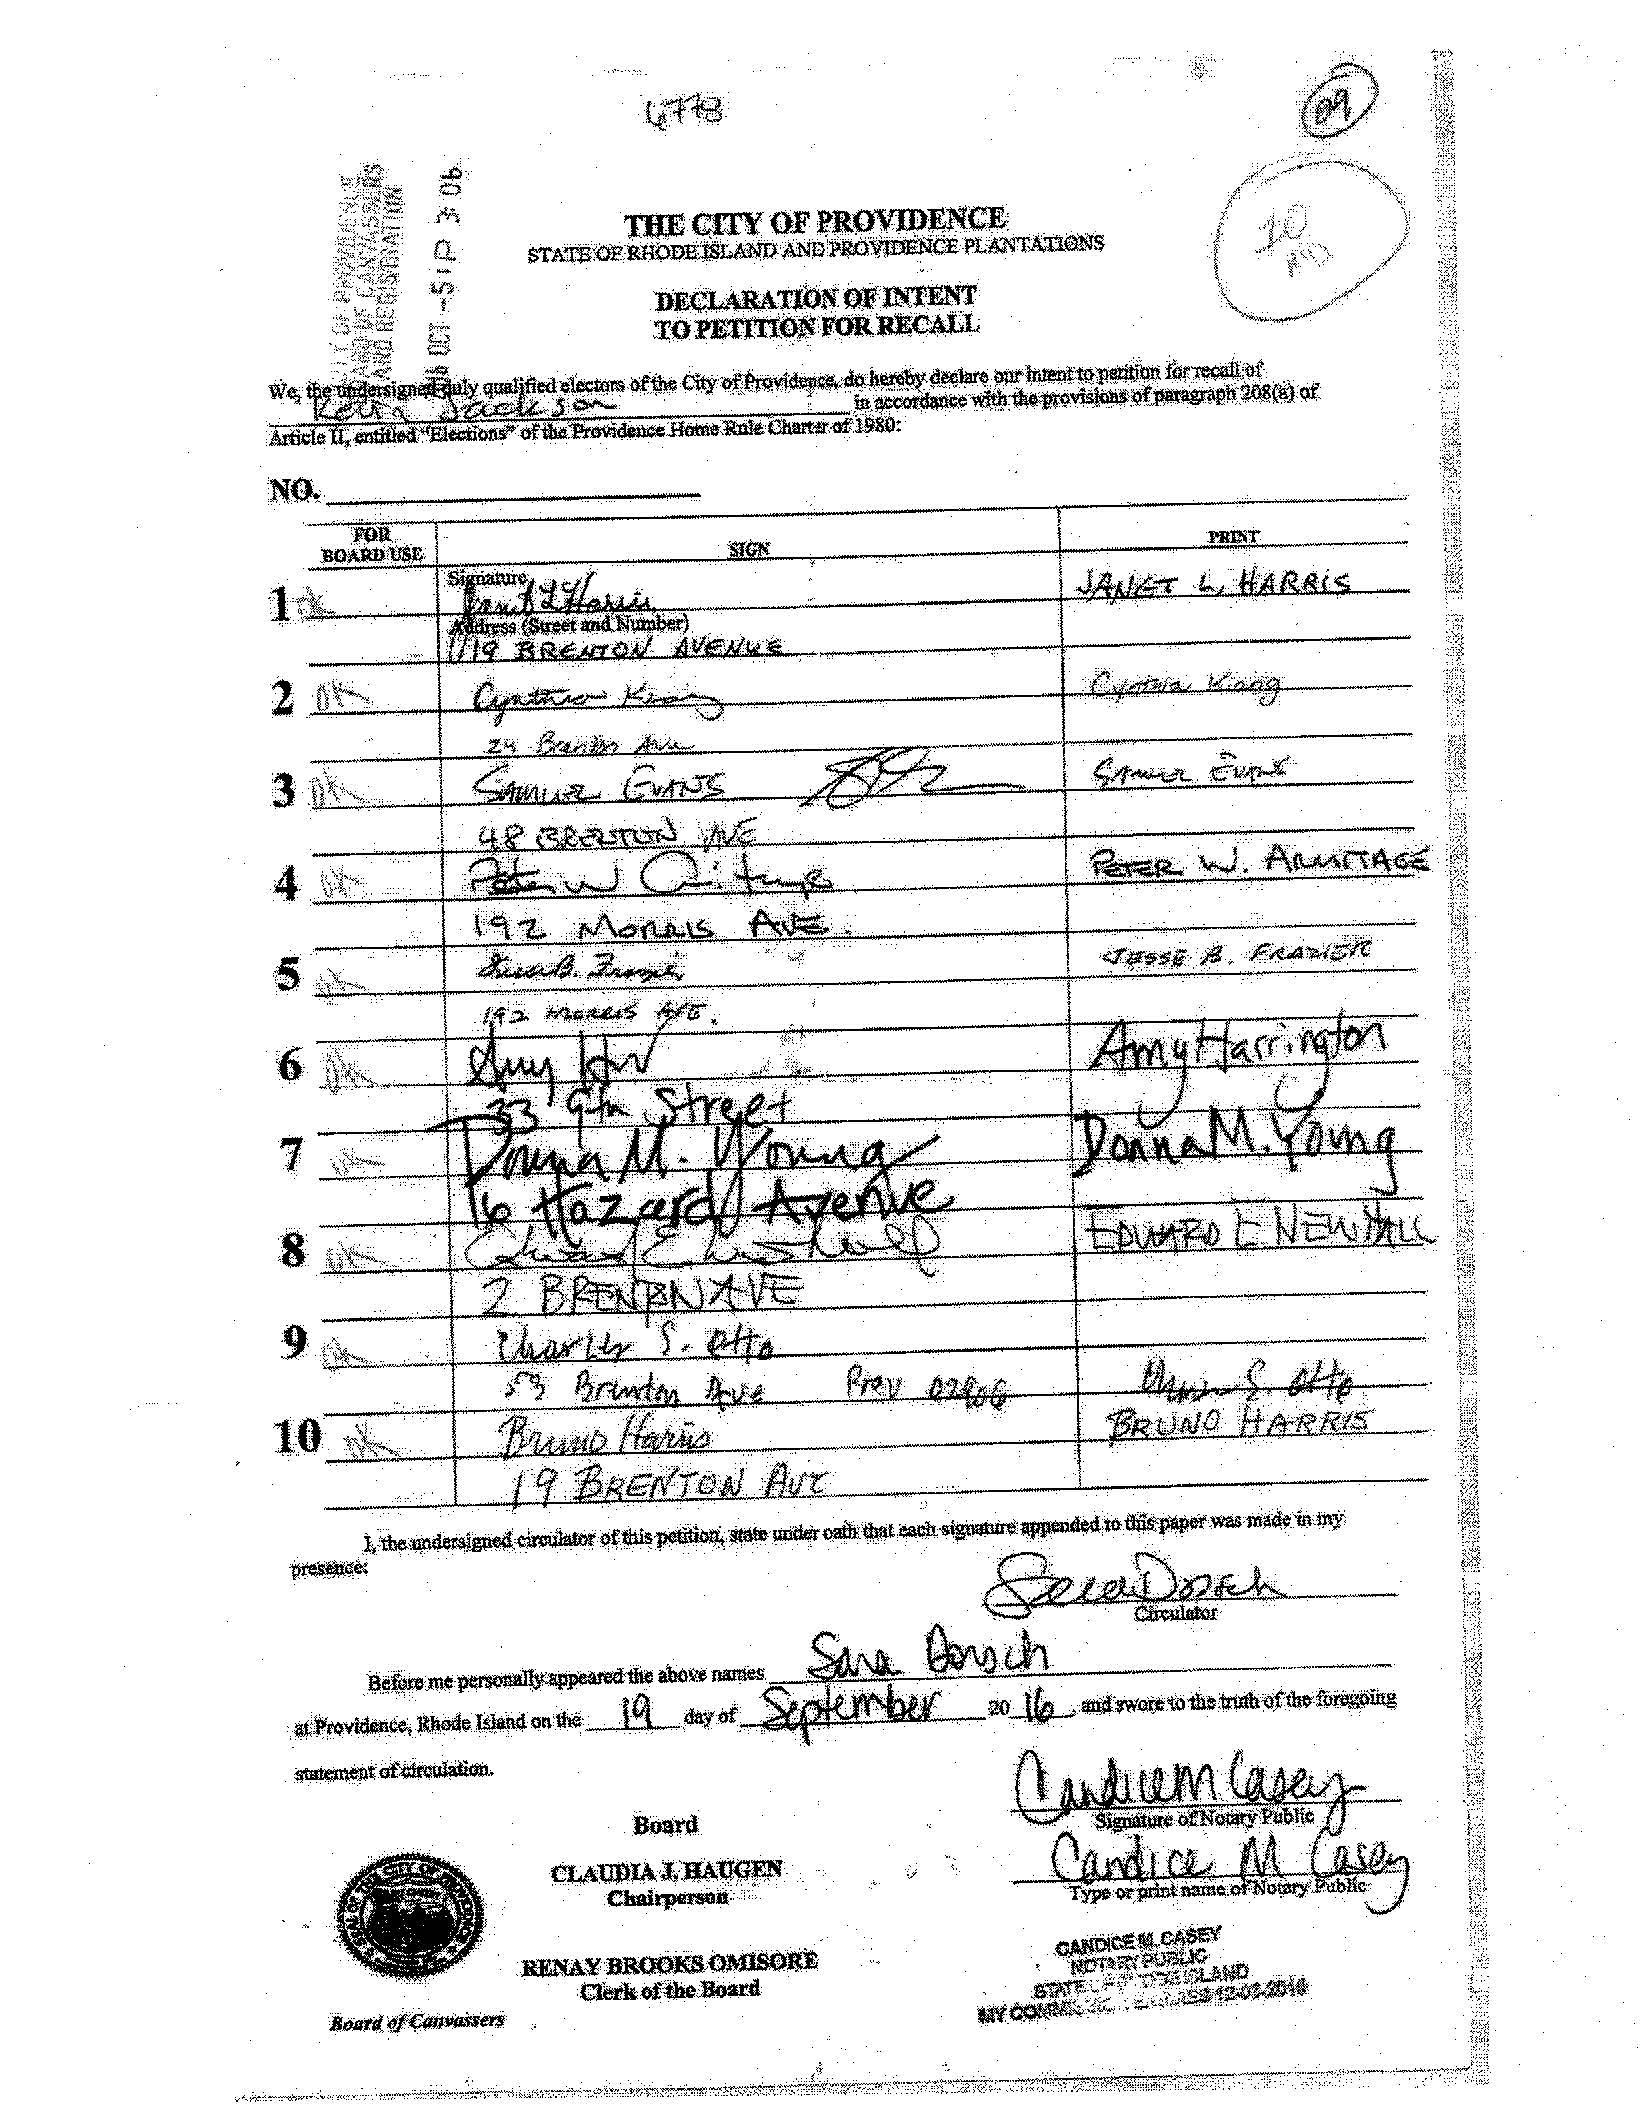 6778
09
10
CITY OF PROVIDENCE
BOARD OF CANVASSERS
AND REGISTRATION
OCT -5 P 3 06
THE CITY OF PROVIDENCE
STATE OF RHODE ISLAND AND PROVIDENCE PLANTATIONS
DECLARATION OF INTENT
TO PETITION FOR RECALL
We, the undersigned duly qualified electors of the City of Providence, do hereby declare our intent to petition for recall of
Kevin Jackson in accordance with the provisions of paragraph 208(a) of
Article II, entitled "Elections" of the Providence Home Rule Charter of 1980:
NO.
FOR
BOARD USE
SIGN
PRINT
Signature
1 OK Janet L Harris JANET L. HARRIS
Address (Street and Number)
19 BRENTON AVENUE
2 OK Cynthia Kiang Cynthia Kiang
24 Brenton Ave
3 OK SAMUEL EVANS SAMUEL EVANS
48 BRENTON AVE
4 OK Peter W Armitage PETER W. ARMITAGE
192 MORRIS AVE.
5 OK Jesse B. Frazier JESSE B. FRAZIER
192 MORRIS AVE.
6 OK Amy Amy Harrington
33 9th Street
7 OK Donna M. Young Donna M. Young
16 Hazard Avenue
8 OK Edward E Newhall EDWARD E NEWHALL
2 BRENTON AVE
9 OK Charles S. Otto
53 Brenton Ave Prov 02906 S. Otto
10 OK Bruno Harris BRUNO HARRIS
19 BRENTON AVE
I, the undersigned circulator of this petition, state under oath that each signature appended to this paper was made in my
presence:
Sara Dorsch
Circulator
Before me personally appeared the above names Sara Dorsch
at Providence, Rhode Island on the 19 day of September 20 16 and swore to the truth of the foregoing
statement of circulation.
Candice M Casey
Signature of Notary Public
Candice M Casey
Type or print name of Notary Public
Board
CLAUDIA J. HAUGEN
Chairperson
RENAY BROOKS OMISORE
Clerk of the Board
Board of Canvassers
CANDICE M. CASEY
NOTARY PUBLIC
STATE OF RHODE ISLAND
MY COMMISSION EXPIRES